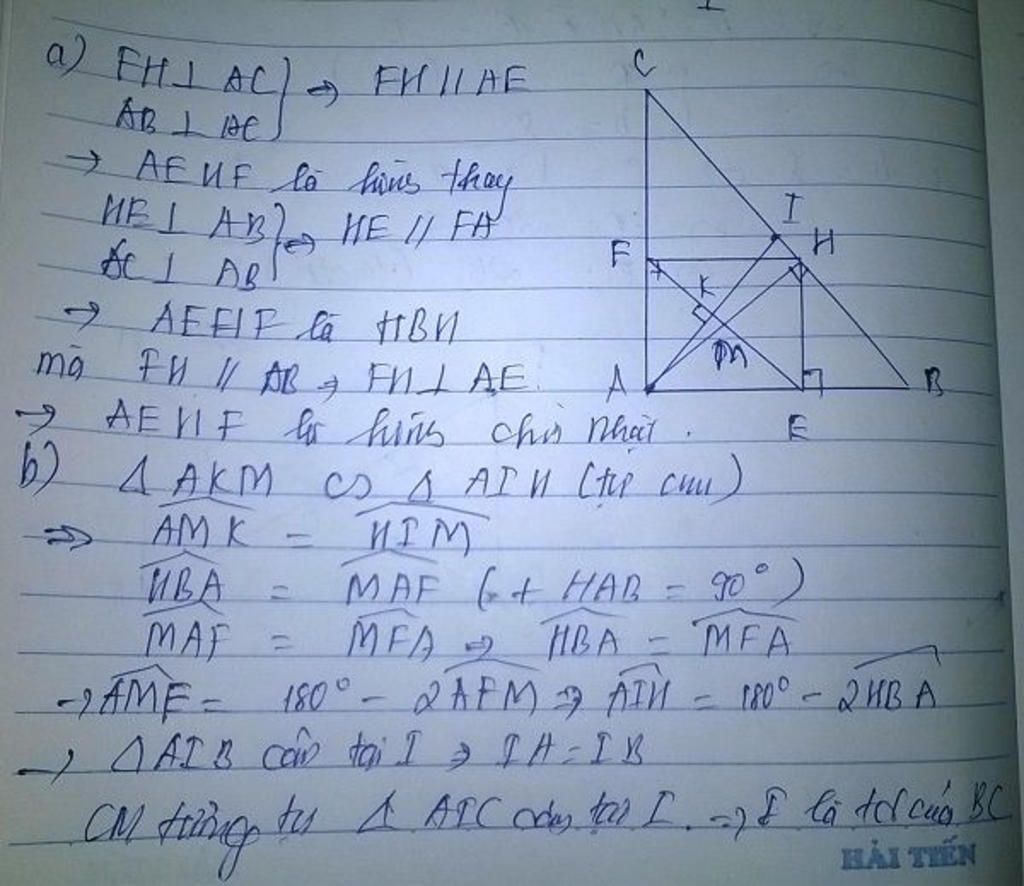 a) FH ⊥ AC
AB ⊥ AC } → FH // AE
→ AEHF là hình thang
HE ⊥ AB
AC ⊥ AB } → HE // FA
→ AEHF là HBH
mà FH // AB → FH ⊥ AE.
→ AEHF là hình chữ nhật.
b) Δ AKM ∽ Δ AIH (tự cm)
⇒ AMK = HIM
HBA = MAF (+ HAB = 90°)
MAF = MFA ⇒ HBA = MFA
→ AMF = 180° - 2AFM ⇒ AIH = 180° - 2HBA
→ Δ AIB cân tại I → IA = IB
CM tương tự Δ AIC cân tại I. ⇒ I là tđ của BC
C
I
F
H
K
M
A
B
E
HẢI TIẾN